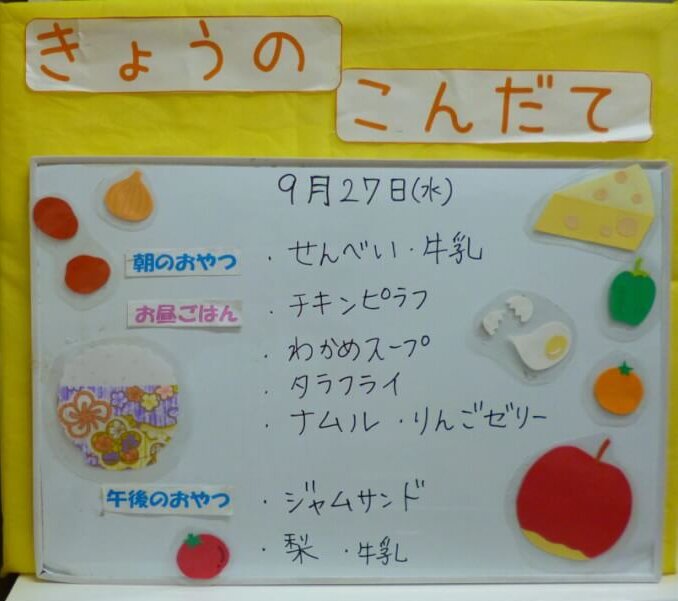 きょうの
こんだて
9月27日(水)
朝のおやつ ・せんべい・牛乳
お昼ごはん ・チキンピラフ
・わかめスープ
・タラフライ
・ナムル・りんごゼリー
午後のおやつ ・ジャムサンド
・梨・牛乳